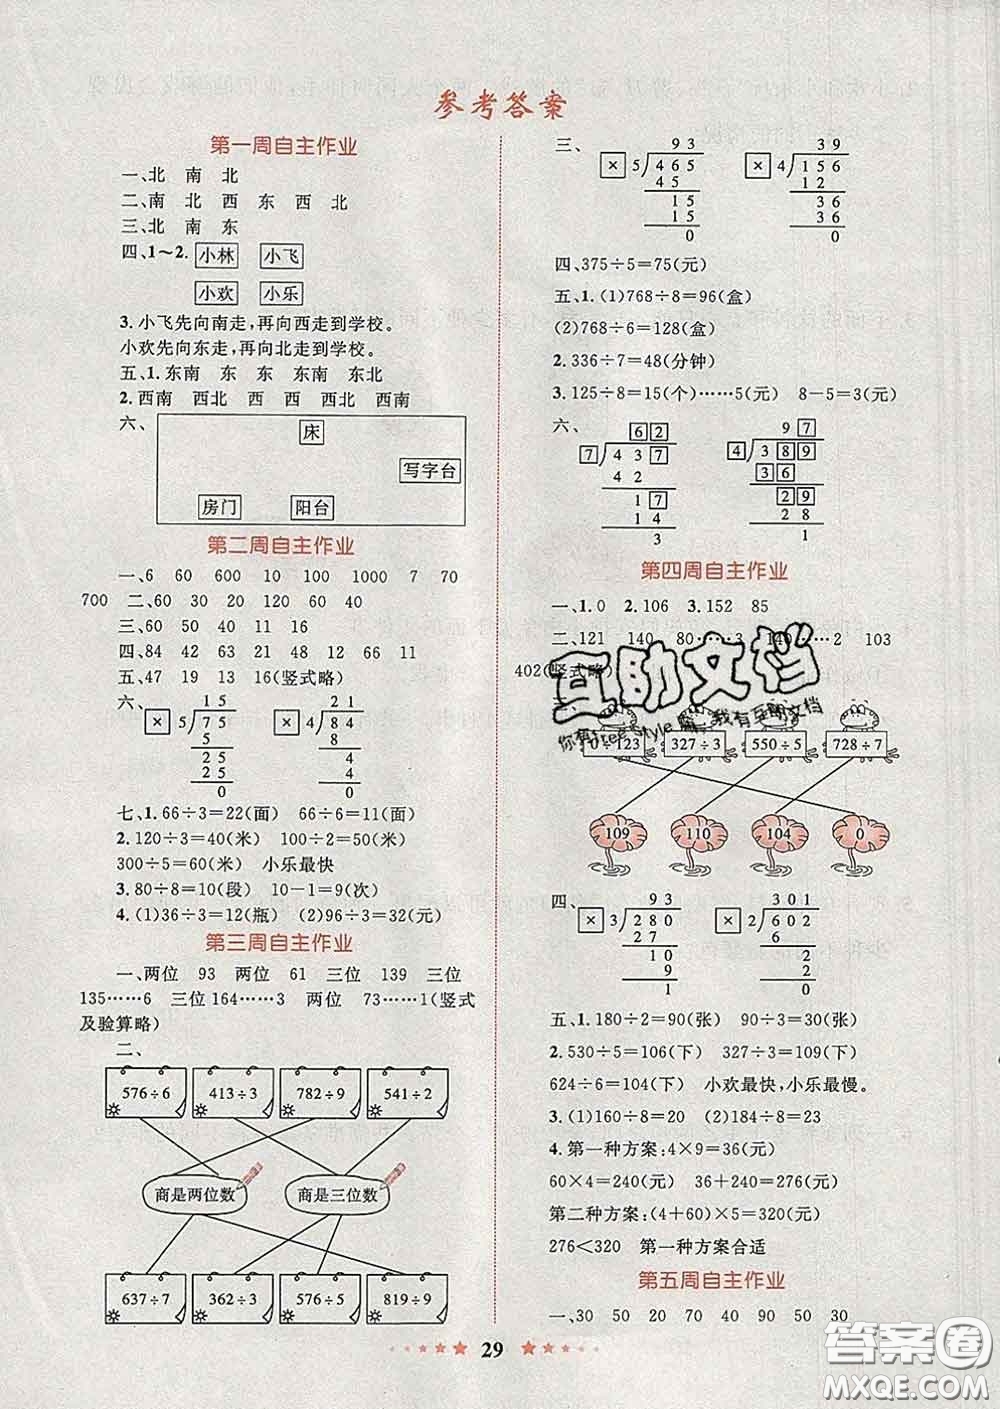 参考答案
第一周自主作业
一、北 南 北
二、南 北 西 东 西 北
三、北 南 东
四、1～2. 小林 小飞
小欢 小乐
3. 小飞先向南走,再向西走到学校。
小欢先向东走,再向北走到学校。
五、1. 东南 东 东 东南 东北
2. 西南 西北 西 西 西北 西南
六、
床
写字台
房门 阳台
第二周自主作业
一、6 60 600 10 100 1000 7 70
700 二、60 30 20 120 60 40
三、60 50 40 11 16
四、84 42 63 21 48 12 66 11
五、47 19 13 16(竖式略)
六、
15
× 5 75
5
25
25
0
21
× 4 84
8
4
4
0
七、1. 66÷3=22(面) 66÷6=11(面)
2. 120÷3=40(米) 100÷2=50(米)
300÷5=60(米) 小乐最快
3. 80÷8=10(段) 10-1=9(次)
4. (1)36÷3=12(瓶) (2)96÷3=32(元)
第三周自主作业
一、两位 93 两位 61 三位 139 三位
135……6 三位 164……3 两位 73……1(竖式
及验算略)
二、
576÷6 413÷3 782÷9 541÷2
商是两位数 商是三位数
637÷7 362÷3 576÷5 819÷9
三、
93
× 5 465
45
15
15
0
39
× 4 156
12
36
36
0
四、375÷5=75(元)
五、1. (1)768÷8=96(盒)
(2)768÷6=128(盒)
2. 336÷7=48(分钟)
3. 125÷8=15(个)……5(元) 8-5=3(元)
六、
62
7 437
42
17
14
3
97
4 389
36
29
28
1
第四周自主作业
一、1. 0 2. 106 3. 152 85
二、121 140 80……3 140……2 103
402(竖式略)
三、
0÷123 327÷3 550÷5 728÷7
109 110 104 0
四、
93
× 3 280
27
10
9
1
301
× 2 602
6
2
2
0
五、1. 180÷2=90(张) 90÷3=30(张)
2. 530÷5=106(下) 327÷3=109(下)
624÷6=104(下) 小欢最快,小乐最慢。
3. (1)160÷8=20 (2)184÷8=23
4. 第一种方案:4×9=36(元)
60×4=240(元) 36+240=276(元)
第二种方案:(4+60)×5=320(元)
276<320 第一种方案合适
第五周自主作业
一、30 50 20 70 40 90 50 30
29
互助文档
你有Free Style 我有互助文档
答案圈
MXQE.COM